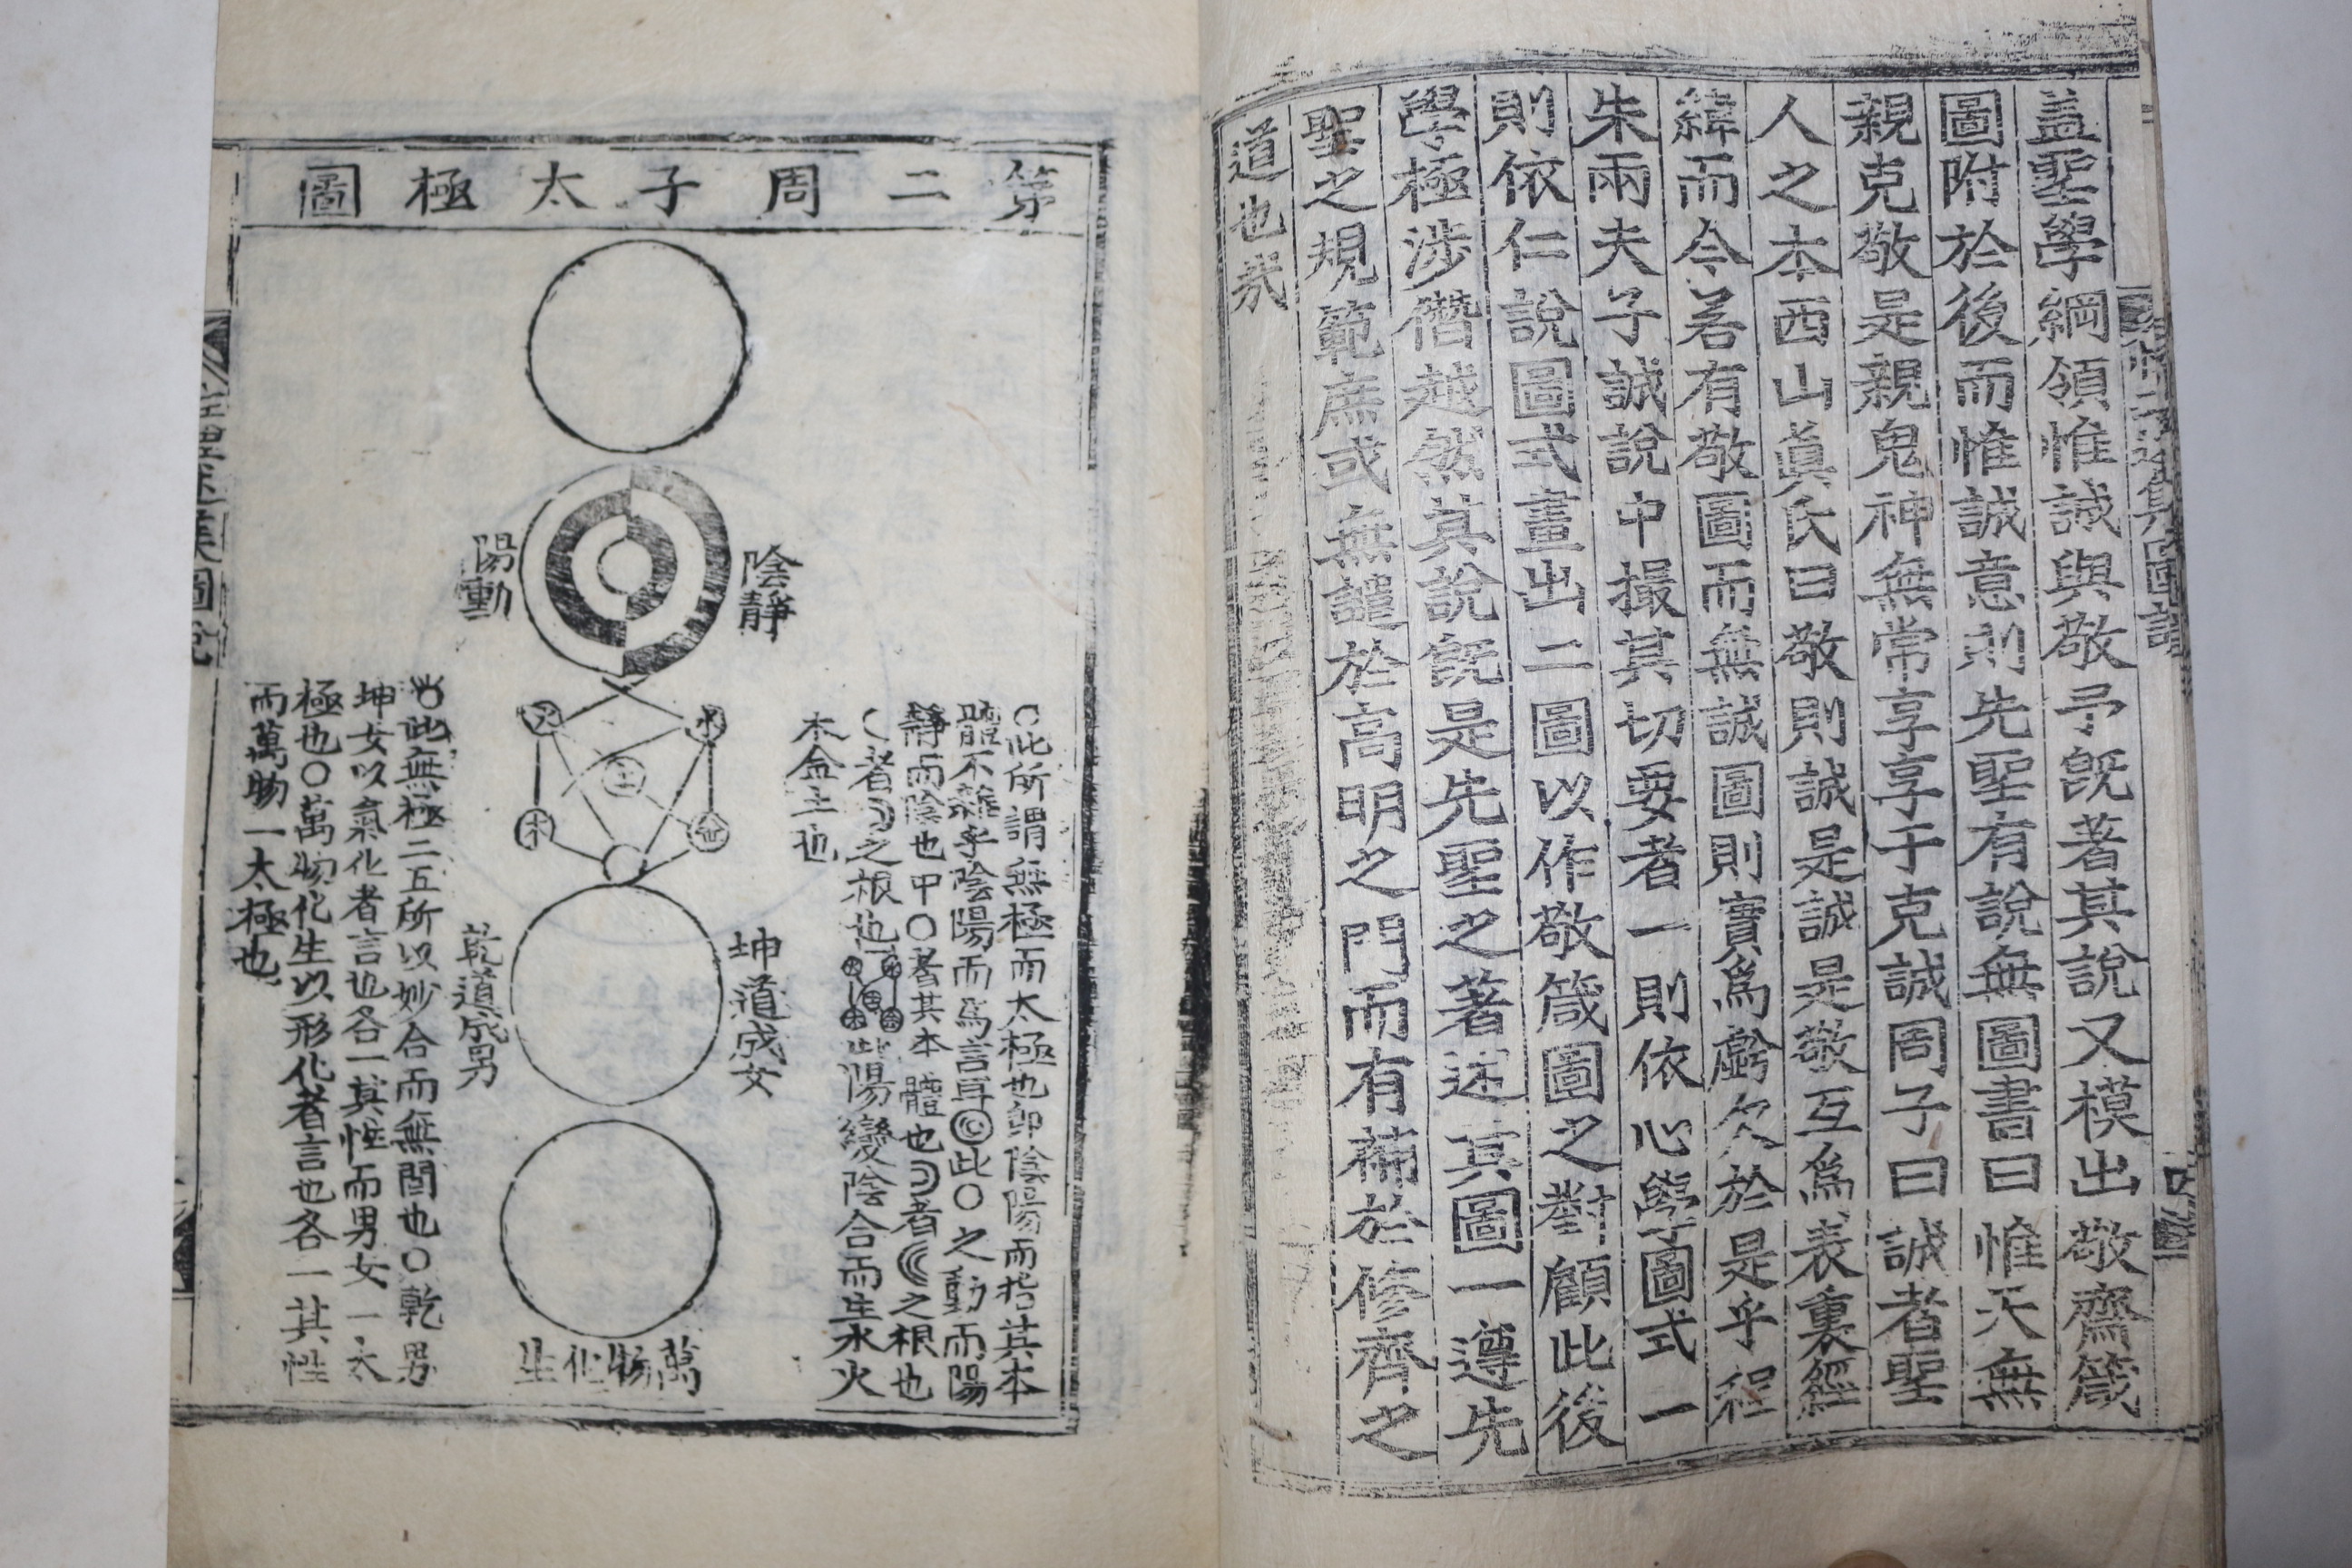 盖聖學綱領惟誠與敬予旣著其說又模出敬齋箴
圖附於後而惟誠意則先聖有說無圖書曰惟天無
親克敬是親鬼神無常享享于克誠周子曰誠者聖
人之本西山眞氏曰敬則誠是誠是敬互爲表裏經
緯而今若有敬圖而無誠圖則實爲虧欠於是乎程
朱兩夫子誠說中撮其切要者一則依心學圖式一
則依仁說圖式畫出二圖以作敬箴圖之對顧此後
學極涉僭越然其說旣是先聖之著述其圖一遵先
聖之規範庶或無謹於高明之門而有補於修齊之
道也哉
第二周子太極圖
陰靜
陽動
火
水
土
木
金
坤道成女
乾道成男
萬物化生
○此所謂無極而太極也卽陰陽而指其本
體不雜乎陰陽而爲言耳此○之動而陽
靜而陰也中○者其本體也者之根也
者之根也此陽變陰合而生水火
木金土也
此無極二五所以妙合而無間也○乾男
坤女以氣化者言也各一其性而男女一太
極也○萬物化生以形化者言也各一其性
而萬物一太極也